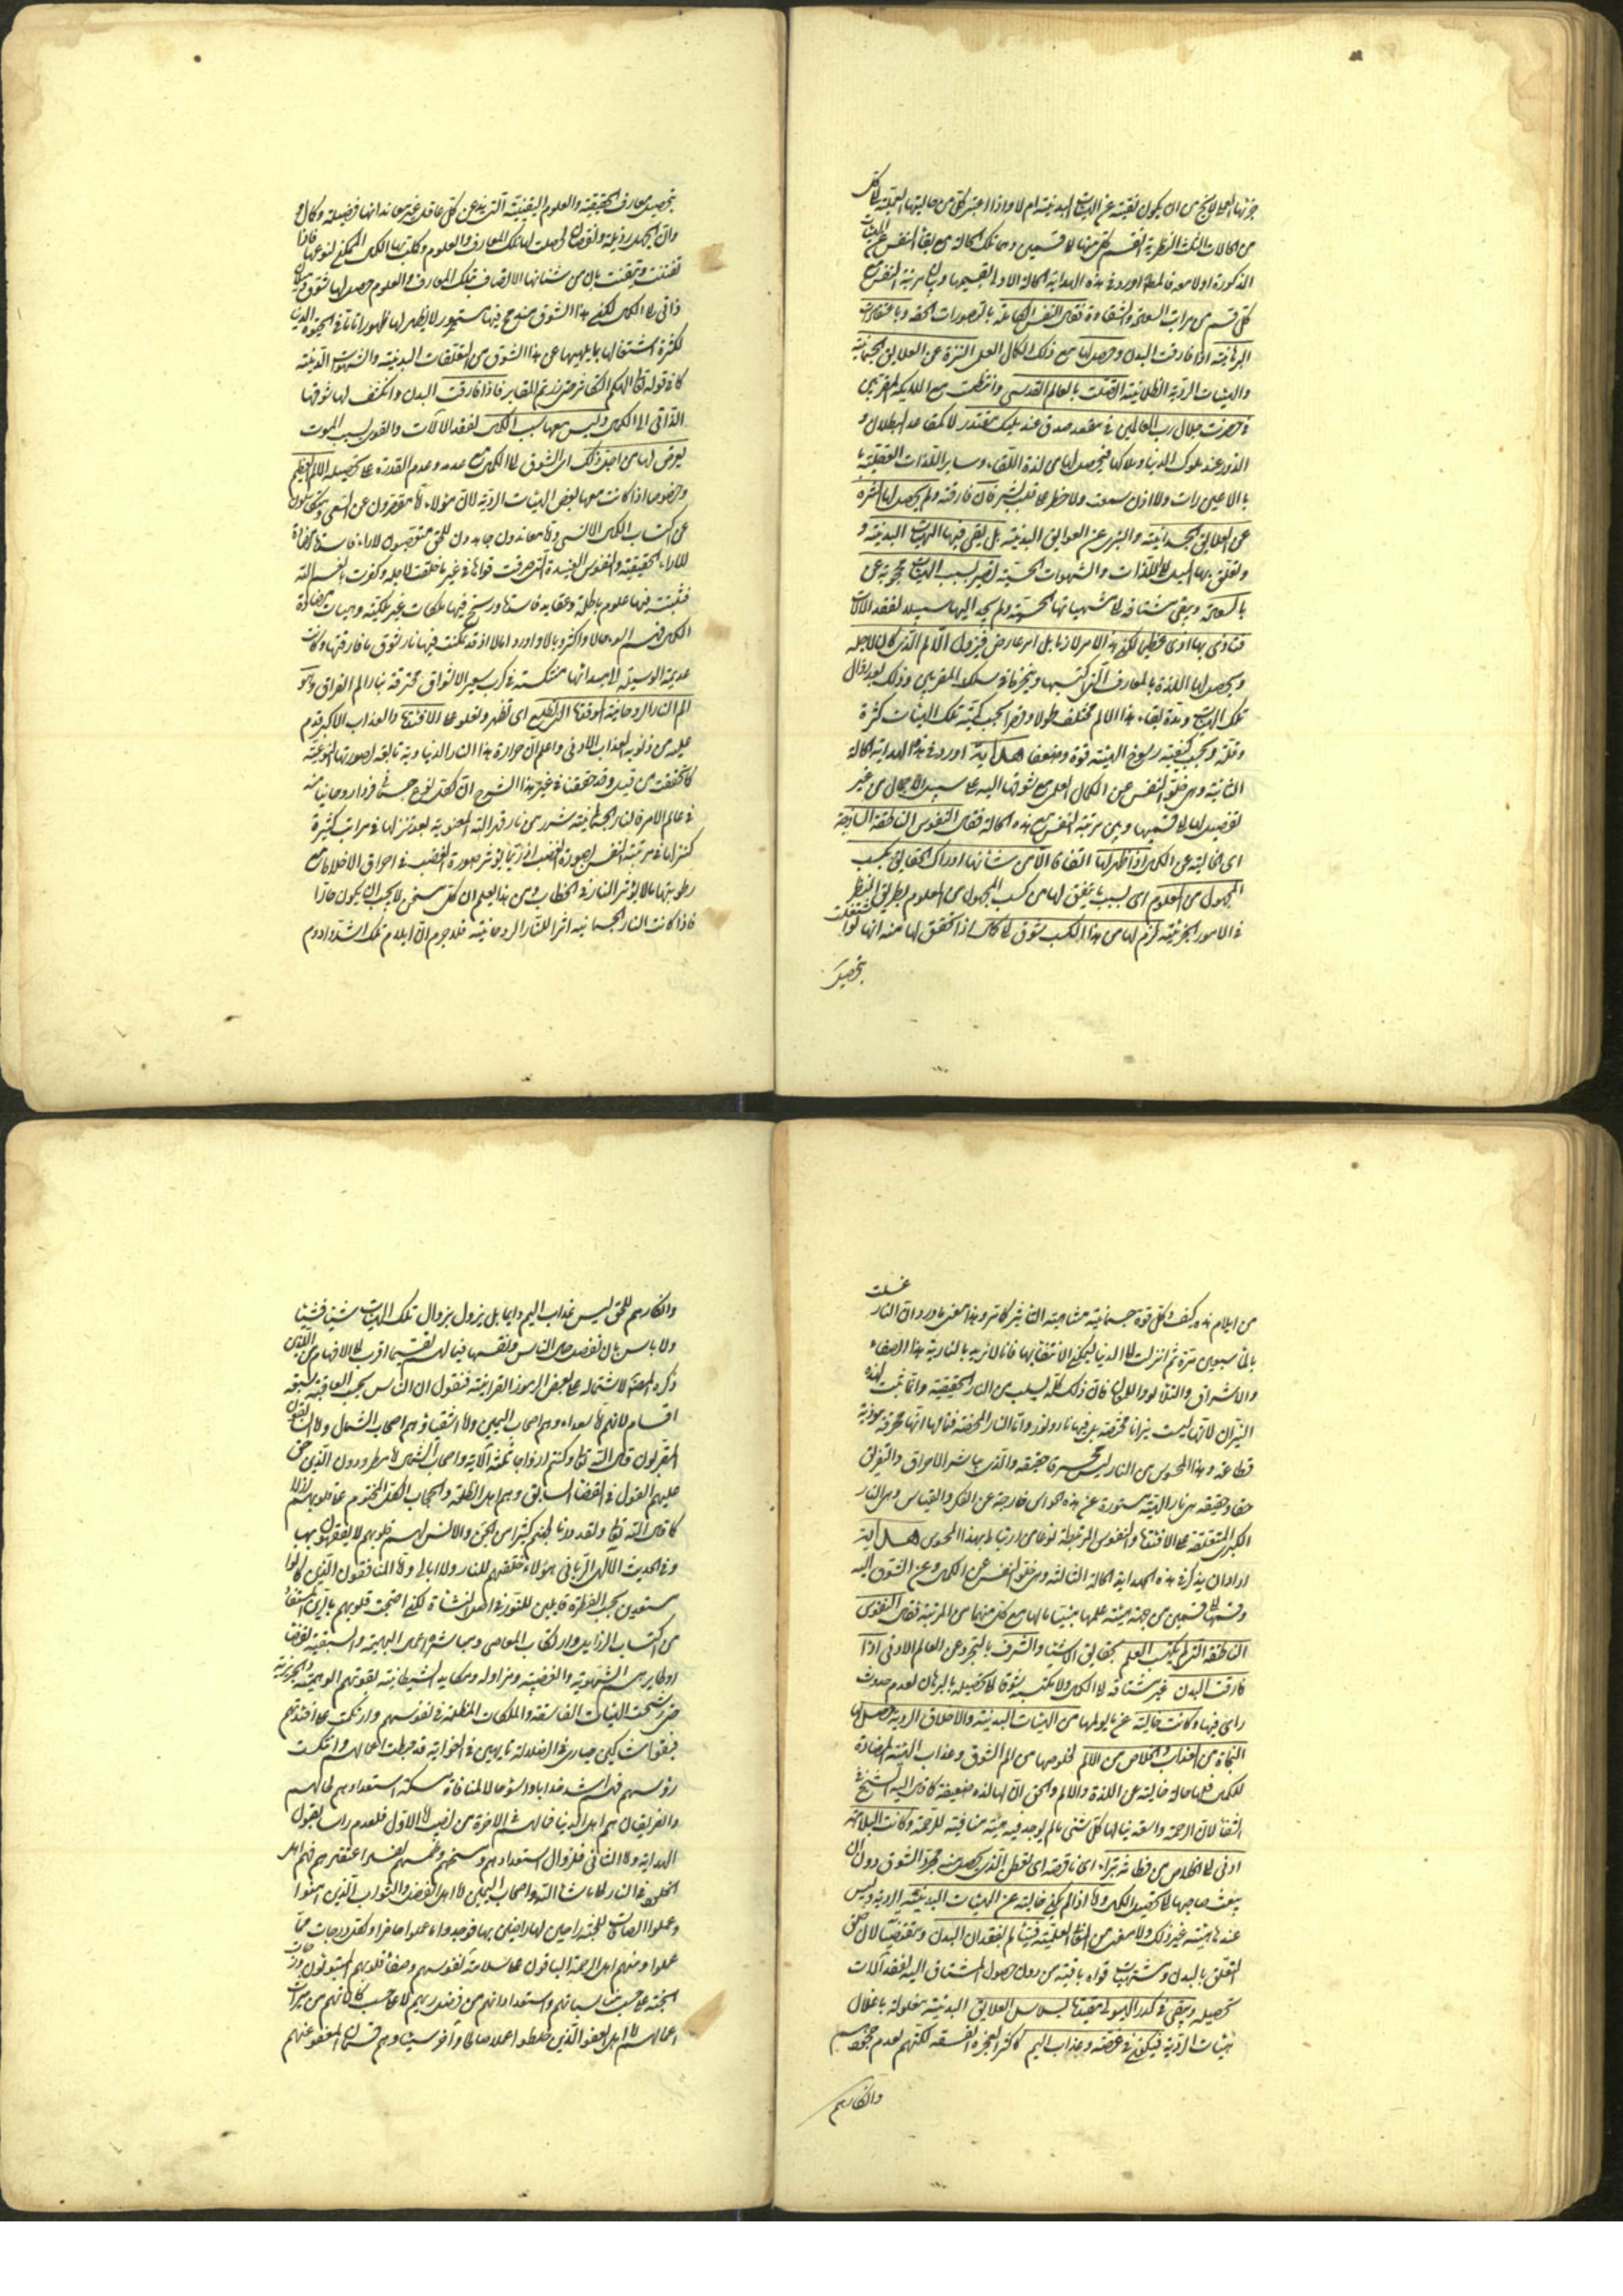 من الحالات الثلث النظرية انقسم كل منها الى قسمين وهى تلك الحالة مع بقاء النفس عن الهيئات
المذكورة اولا معه فالمصنف اورد فى هذه الهداية الحالة الاولى بقسيميها وبيان مرتبة النفس مع
كل قسم من مراتب السعادة والشقاوة فقال النفس الكاملة بالتصورات الحقة وباعتقادات
البرهانية اذا فارقت البدن وحصل لها مع ذلك الكمال العلمى التنزه عن العلائق الجسمانية
والهيئات الردية الظلمانية اتصلت بالعالم القدسى وانخرطت مع الملائكة المقربين
فى حضرت جلال رب العالمين فى مقعد صدق عند مليك مقتدر لا كمقاعد البطلان و
الزور عند ملوك الدنيا وملاكها فيحصل لها من لذة اللقاء وسائر اللذات العقلية ما
ما لا عين رات ولا اذن سمعت ولا خطر على قلب بشر فان فارقته ولم يحصل لها التنزه
عن العلائق الجسدانية والتبرى عن العوائق البدنية بل يبقى فيها الهيئات البدنية و
وتعلق بها الميل الى اللذات والشهوات الحسية تصير بسبب الهيئات محجوبة عن
بالسعادة ويبقى مشتاقة الى مشتهياتها الحسية ولم يجد اليها سبيلا لفقد الالات
فتاذى بها اذى عظيما لكن هذا الامر لازما بل امر عارض فيزول الالم الذى كان لاجله
ويحصل لها اللذة بالمعارف التى اكتسبها وينخرط فى سلك المقربين وذلك بعد زوال
تلك الهيئات ومدة بقاء هذا الالم مختلف طولا وقصرا بحسب كمية تلك الهيئات كثرة
وقلة وبحسب كيفية رسوخ الهيئة قوة وضعفا هداية اورد فى هذه الهداية الحالة
الثانية وهى خلو النفس عن الكمال العلمى مع شوقها اليه على سبيل الاجمال من غير
تفصيل لها الى قسميها وبين مرتبة النفس مع هذه الحالة فقال النفوس الناطقة الساذجة
اى الخالية عن الكمال اذا ظهر لها اتفاقا ان من شأنها ادراك الحقايق بكسب
المجهول من المعلوم اى بسبب ما يتفق لها من كسب المجهول من المعلوم بطريق النظر
فى الامور الجزئية لزم لها من هذا الكسب شوق الى كمال اذا تحقق لها منه انها لو اشتغلت
بتحصيل
بتحصيل معارف الحقيقية والعلوم اليقينية التى يدعن كل عاقل غير معاند انها فضيلة وكمال و
وان الجهل رذيلة ونقصان لحصلت لها تلك المعارف والعلوم وكملت بها الكمال الممكن لنوعها فاذا
تفطنت وتيقنت بان من شأنها الاتصاف بتلك المعارف والعلوم حصل لها شوق وميلان
ذاتى الى الكمال لكن هذا الشوق منغمر فيها مستور لا يظهر لها ظهورا تاما فى الحيوة الدنيا
لكثرة اشتغالها بما يلهيها عن هذا الشوق من التعلقات البدنية والشهوات الدنية
كما فى قوله تعالى الهيكم التكاثر حتى زرتم المقابر فاذا فارقت البدن وانكشف لها شوقها
الذاتى الى الكمال وليس معها سبب الكمال لفقد الآلات والقوى بسبب الموت
يعرض لها من اجل ذلك اى الشوق الى الكمال مع عدمه وعدم القدرة على تحصيله الالم العظيم
وخصوصا اذا كانت معها بعض الهيئات الردية لان هؤلاء اما مقصرون عن السعى ومتكاسلون
عن اكتساب الكمال الانسى واما معاندون جاحدون للحق متعصبون لاراء فاسدة مضادة
للاراء الحقيقية والنفوس العنيدة التى صرفت قواها فى غير ما خلقت لاجله وكفرت بانعم الله
فثبتت فيها علوم باطلة وعقايد فاسدة ورسخ فيها ملكات غير ملكية وهيئات مضادة
الكمال فهم اسوء حالا واكثر وبالا
عديمة الوسيلة لا يصد انها منتكسة فى كرب سعير الاشواق محترقة بنار الم الفراق وهو
الم النار الروحانية الموقدة التى تطلع اى تظهر وتعلو على الافئدة والعذاب الاكبر قدم
عليه من ذنوبه العذاب الادنى واعلم ان حرارة هذا النار الدنياوية تابعة لصورتها النوعية
كما تحققت من قبل وقد حققنا فى غير هذا الشرح ان لكل نوع جسمانى فردا روحانيا منه
فى عالم الامر فالنار الجسمانية شرر من نار قهر الله المعنوية بعد تنزلها فى مراتب كثيرة
كتنزلها فى مرتبة النفس بصورة الغضب اذ ربما يؤثر صورة الغضب فى احراق الاخلاط مع
رطوبتها مالا يؤثر النار فى الحطاب ومن هذا يعلم ان كل مسخن لا يجب ان يكون حارا
فاذا كانت النار الجسمانية اثرا للنار الروحانية فلا جرم ان ايلام تلك اشد وادوم
من ايلام هذه كيف وكل قوة جسمانية متناهية التاثير كما مر وهذا معنى ما ورد ان النار غسلت
بالماء سبعين مرة ثم انزلت الى الدنيا ليمكن الانتفاع بها فانا لا نريد بالنارية هذا الصفاء
والاشراق والتلألؤ واللمعان فان ذلك كله ليسلب من النار الحقيقية وانما ثبت لهذه
النيران لانها ليست نيرانا محضة بل فيها نار ونور واما النار المحضة فنالها انها محرقة موذية
قطاعة وهذا المحسوس من النار ليس محرقا حقيقة والذى يباشر الاحراق والتفريق
حقا وحقيقة هى نار الهية مستورة عن هذه الحواس خارجة عن الفكر والقياس وهى النار
الكبرى المتعلقة على الافئدة والنفوس المرتبطة نوعا من ارتباط بهذا المحسوس هداية
اراد ان يذكر فى هذه الهداية الحالة الثالثة وهى خلو النفس عن الكمال وعن الشوق اليه
وقسمها الى قسمين من جهة هيئة عملها مبينا حالها مع كل منهما من المرتبة فقال النفوس
الناطقة التى لم يكتسب العلم بحقايق الاشياء والشرف بالتجرد عن العالم الادنى اذا
فارقت البدن غير مشتاقة الى الكمال ولا مكتسبة شوقا الى تحصيله بالبرهان لعدم حدوث
راى فيها وكانت خالية عن ما يؤلمها من الهيئات البدنية والاخلاق الردية حصل لها
النجاة من العذاب والخلاص من الالم لخلوصها من الم الشوق وعذاب الهيئة المضادة
للكمال فلها حالة خالية عن اللذة والالم والحق ان لها لذة ضعيفة كما قال اليه الشيخ فى
الشفاء لان الرحمة واسعة ينالها كل شئى مالم يوجد فيه هيئة منافية للرحمة وكانت البلاهة
ادنى الى الخلاص من فطانة بتراء اى ناقصة اى تعطى الذى يحصل منه مجرد الشوق دون ان
يبعث صاحبها الى تحصيل الكمال واما اذا لم يكن خالية عن الهيئات البدنية الردية وليس
عندها هيئة غير ذلك ولا معنى من الملكة العلمية فيتألم بفقدان البدن ومقتضياته لان خلق
التعلق بالبدن ومشتهيات قواه باقية من دون حصول المشتاق اليه لفقد آلات
تحصيله ويبقى فى كدر الهيولى مقيدة بسلاسل العلايق البدنية مغلولة باغلال
هيئات الردية فيكون فى غصة وعذاب اليم كاكثر العجزة الفسقة لكنهم لعدم جحودهم
وانكارهم
وانكارهم للحق ليس عذاب اليم دايما بل يزول بزوال تلك الهيئات شيئا فشيئا
ولا باس بان نفصل حال الناس ونقسمها فيما لهم تقسيما اقرب الى الافهام من الذى
ذكره المص لاشتماله على بعض الرموز القرانية فنقول ان الناس بحسب العاقبة ستة
اقسام لانهم اما سعداء وهم اصحاب اليمين واما اشقياء وهم اصحاب الشمال واما السابقون
المقربون قال الله تعالى وكنتم ازواجا ثلثة الآية واصحاب الشمال اما مطرودون الذين حق
عليهم القول فى القضاء السابق وهم اهل الظلمة والحجاب الكلى المختوم على قلوبهم ازلا
كما قال الله تعالى ولقد ذرأنا لجهنم كثيرا من الجن والانس لهم قلوب لا يفقهون بها
وفى الحديث الالهى الربانى هؤلاء خلقتهم للنار ولا ابالى واما المنافقون الذين كانوا
مستعدين بحسب الفطرة قابلين للنور فى اصل النشأة لكن احتجبت قلوبهم بالرين المستفاد
من اكتساب الرذايل وارتكاب المعاصى ومباشرة اعمال البهيمة والسبعية
حتى رسخت الهيئات الفاسقة والملكات المظلمة فى نفوسهم وارتكمت على افئدتهم
فبقوا شاكين حيارى فى الضلالة تايهين فى الغواية قد حبطت اعمالهم وانتكست
رؤسهم فهم اشد عذابا واسوء حالا لمنافاة مسكة استعدادهم لحالهم
والفريقان هم اهل الدنيا فما لهم فى الاخرة من نصيب اما الاول فلعدم
الهداية واما الثانى فلزوال استعدادهم ومسخهم وطمسهم لفساد اعتقادهم فهم اهل
الخلود فى النار الا ما شاء الله واصحاب اليمين اما اهل الفضل والثواب الذين امنوا
وعملوا الصالحات للجنة راجين لها راضين بها فوجدوا ما عملوا حاضرا ولكل درجات مما
عملوا ومنهم اهل الرحمة الباقون على سلامة نفوسهم وصفاء قلوبهم المتبوئون درجات
الجنة على حسب مناسباتهم واستعداداتهم من فضل ربهم لا على حسب كمالاتهم من ميراث
اعمالهم اما اهل العفو الذين خلطوا عملا صالحا وآخر سيئا وهم قسمان المعفو عنهم